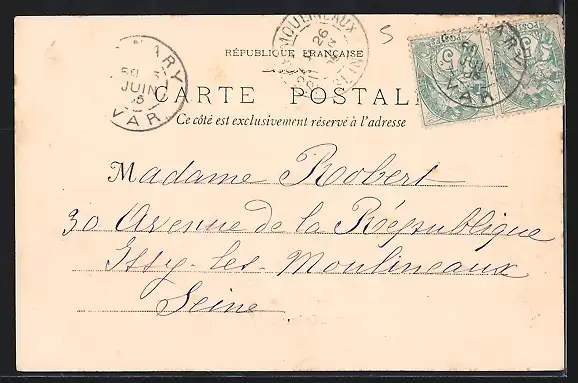 RÉPUBLIQUE FRANÇAISE
CARTE POSTALE
Ce côté est exclusivement réservé à l'adresse
Madame Robert
30 Avenue de la République
Issy-les-Moulineaux
Seine
MOULINEAUX
26
JUIN
VAR
JUIN
VAR
5